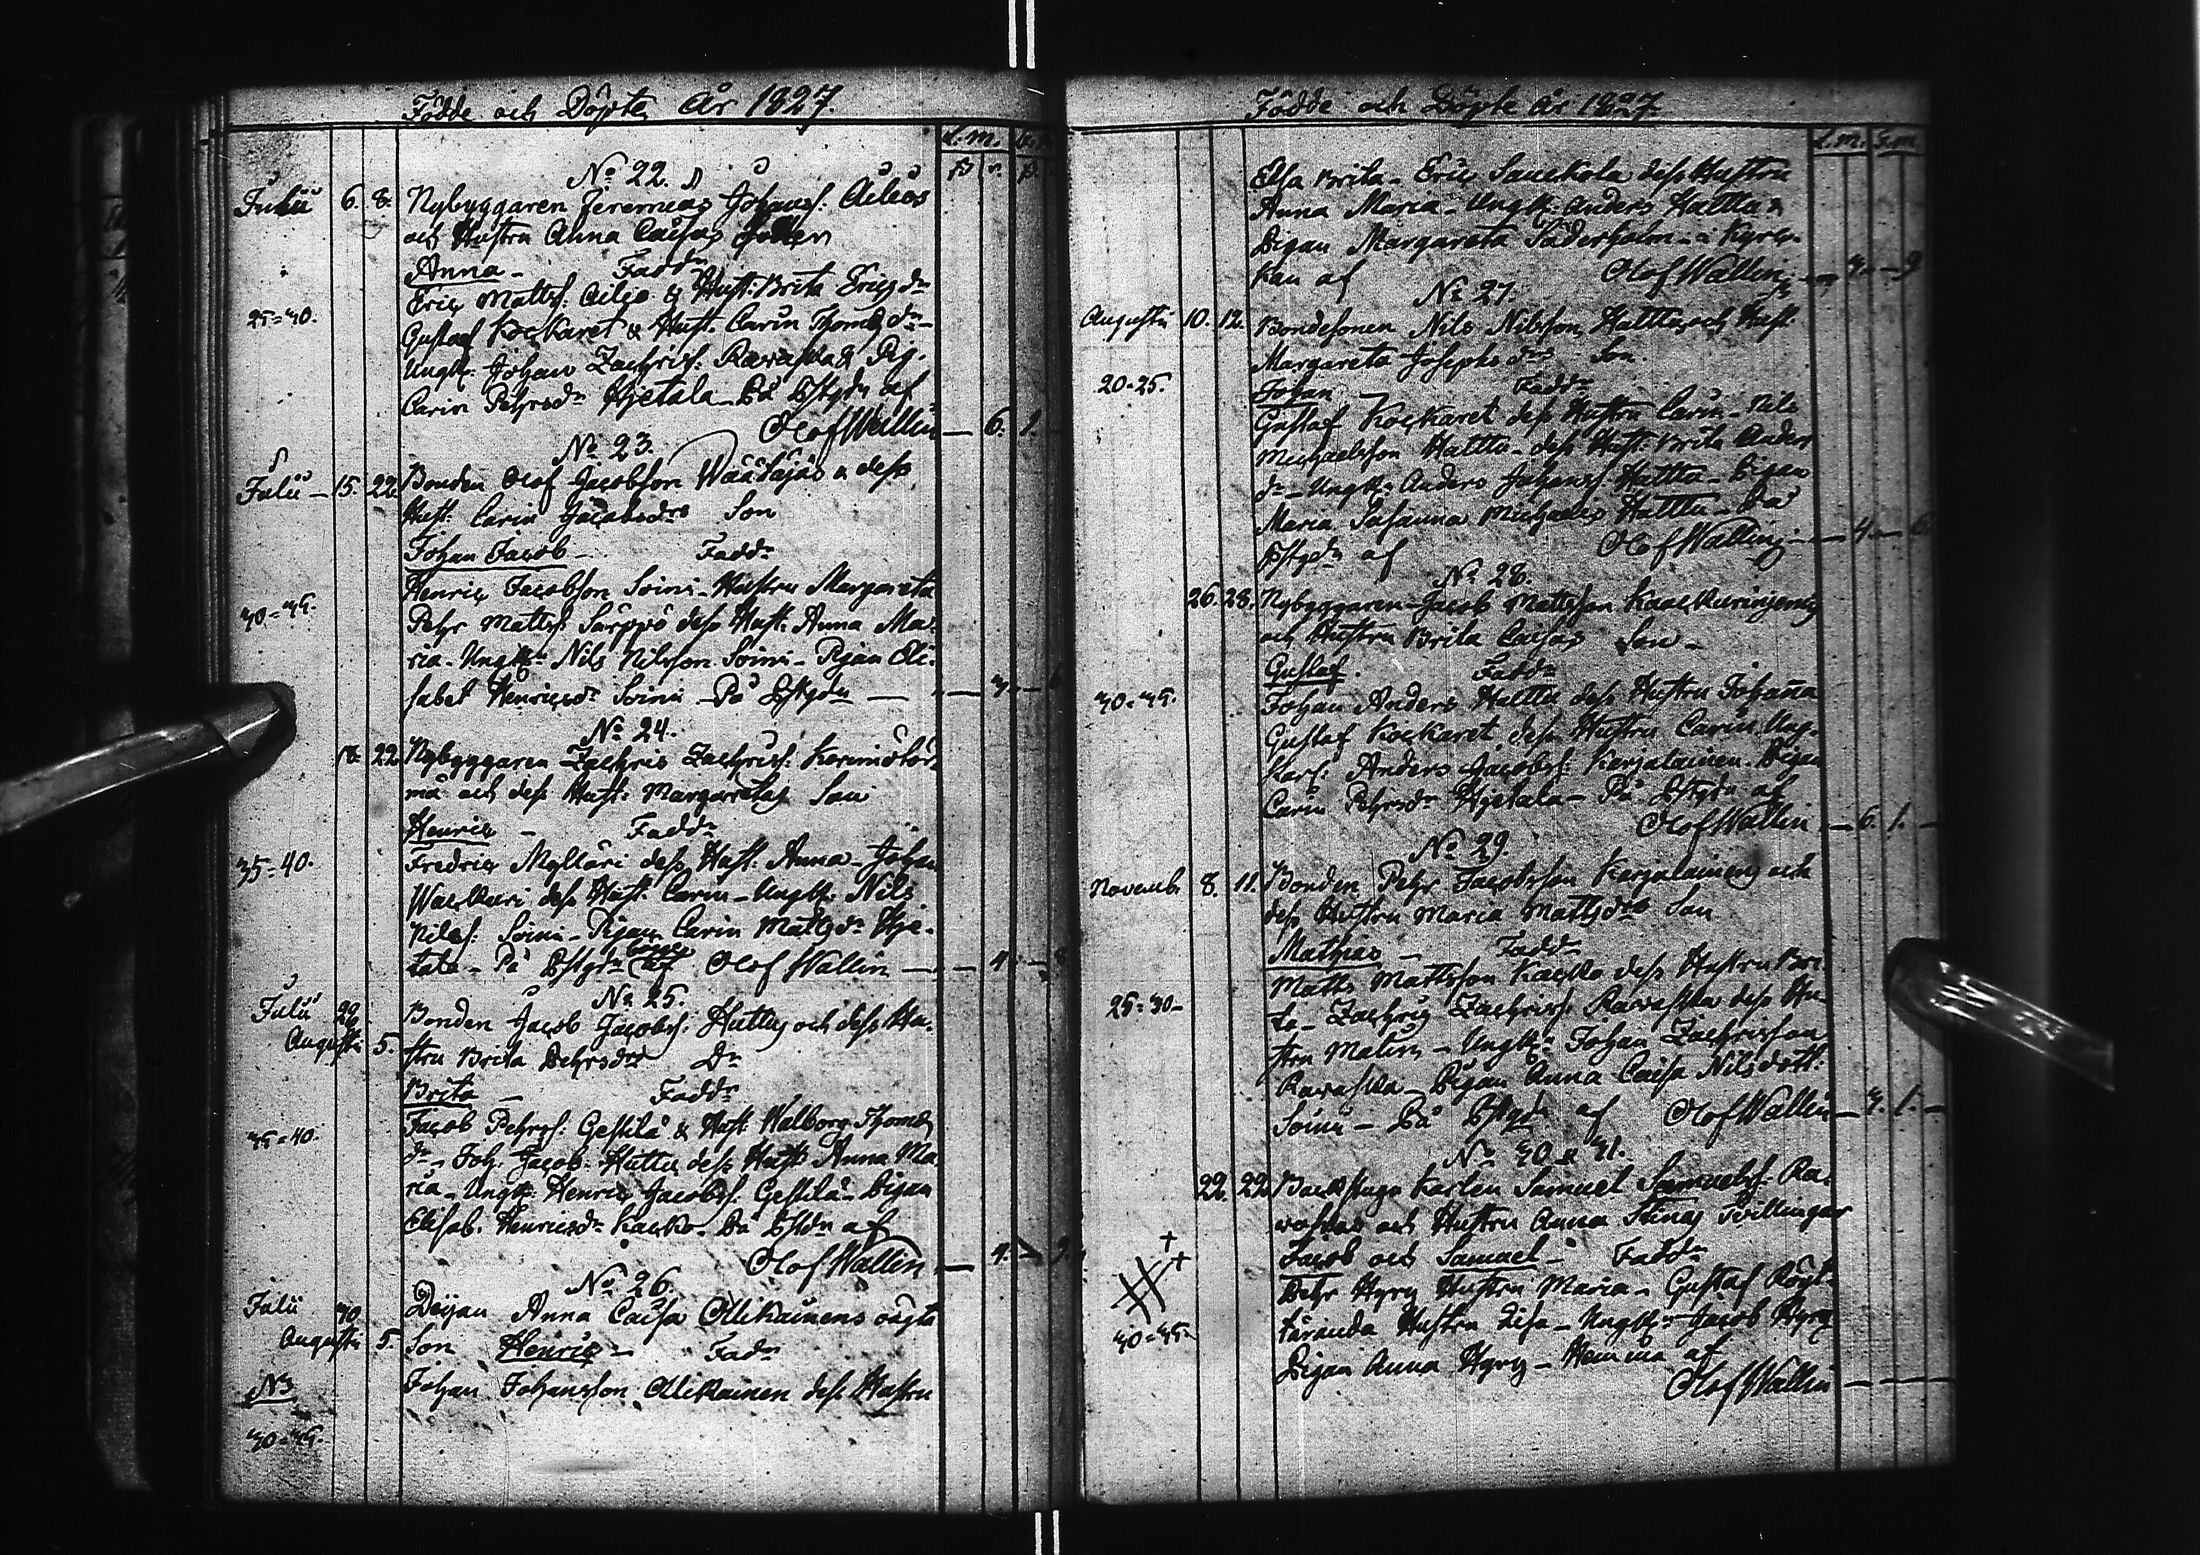 Födde och Döpte År 1827.
L. m. S. m.
No 22.
Julii 6. 8. Nybyggaren Jeremias Johanss: Ailios
och Hustru Anna Caisas Dotter
Anna - Faddr
Eric Mattss: Ailio & Hust: Brita Ericsdr
25=30. Gustaf Kockaret & Hust. Carin Thomædr
Ungk: Johan Zachriss: Rawaska & Pig.
Carin Pehrsdr Hjetala - På Bstgdn af
Olof Wallin - 6. 1. -
No 23.
Julii - 15. 22. Bonden Olof Jacobsson Wäätäjäs & dess
Hust: Carin Jacobsdrs Son
Johan Jacob - Faddr
Henric Jacobsson Soini - Hustru Margareta
30=35. Pehr Mattss: Särppö dess Hust: Anna Ma-
ria - Ungkn Nils Nilsson Soini - Pigan Eli-
sabet Henricsdr Soini - På Bstgdn -
No 24.
18. 22. Nybyggaren Zachris Zachriss: Kerimitör-
mä och dess Hust: Margaretas Son
Henric - Faddr
35=40. Fredric Mylläri dess Hust: Anna - Johan
Wackkuri dess Hust: Carin - Ungk: Nils
Nilss: Soini - Pigan Carin Mattsdr Hje-
tala - På Bstgdn af Olof Wallin -
No 25.
Julii 29. Bonden Jacob Jacobss: Huttus och dess Hu-
Augusti 5. stru Brita Pehrsdrs Dr
Brita - Faddr
Jacob Pehrss: Gestilä & Hust: Walborg Thomæ
35=40. dr - Joh. Jacob: Huttu dess Hust: Anna Ma-
ria - Ungk: Henric Jacobss: Gestilä - Pigan
Elisab. Henricsdr Kacko - På Bstdn af
Olof Wallin
No 26.
Julii 30. Deijan Anna Caisa Ollikainens oägta
Augusti 5. Son Henric - Fadr
Johan Johansson Ollikainen dess Hustru
30=35.
Födde och Döpte År 1827.
L. m. S. m.
Elsa Brita - Eric Sauckola dess Hustru
Anna Maria - Ungk: Anders Hattha &
Pigan Margareta Söderholm - i Kyrc-
kan af Olof Wallin
No 27.
Augusti 10. 12. Bondesonen Nils Nilsson Hatthas och Hust:
Margareta Josephsdrs Son.
20=25. Johan - Faddr
Gustaf Kockaret dess Hustru Carin - Nils
Michaelsson Hattha - dess Hust: Brita Anders
dr - Ungk: Anders Johanss: Hattha - Pigan
Maria Susanna Michaels Hattha - På
Bstgdn af Olof Wallin
No 28.
26. 28. Nybyggaren Jacob Mattsson
och Hustru Brita Caisas Son -
Gustaf. Faddr
30=35. Johan Anders Hattha dess Hustru Johanna
Gustaf Kockaret dess Hustru Carin. Ung-
Karl: Anders Jacobss: Karjalainen. Pigan
Carin Pehrsdr Hjetala - På Bstgdn af
Olof Wallin - 6. 1. -
No 29.
Novemb. 8. 11. Bonden Pehr Jacobsson Karjalainens och
dess Hustru Maria Mattsdrs Son
Mathias - Faddr
Matts Mattsson Kacko dess Hustru Bri-
25=30- ta - Zachris Zachriss: Rawaska dess Hu-
stru Malin - Ungkn Johan Zachrisson
Rawaska - Pigan Anna Caisa Nilsdott:
Soini - På Bstgdn af Olof Wallin - 3. 1. -
No 30 & 31.
22. 22. Backstugu Karlen Samuel Samuelss: Ra-
waskas och Hustru Anna Stinas Tvillingar
Jacob och Samuel - Faddr
Pehr Hyry Hustru Maria - Gustaf Köyk-
30=35. täranda Hustru Lisa - Ungkn Jacob Hyry
Pigan Anna Hyry - Hemma af
Olof Wallin